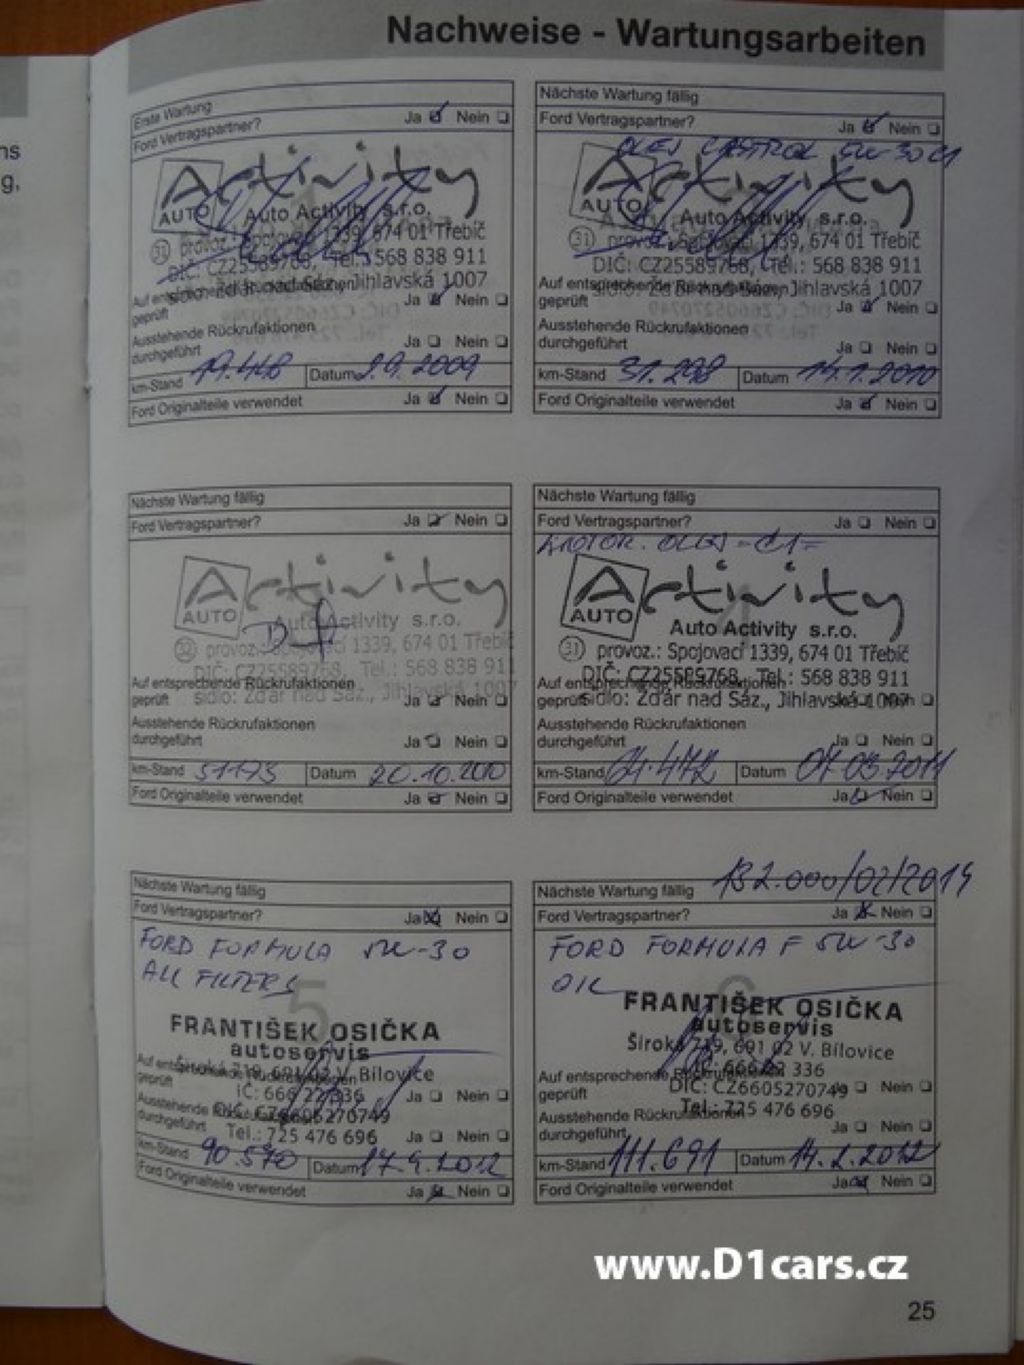 Nachweise - Wartungsarbeiten
Erste Wartung
Ford Vertragspartner? Ja Nein
Activity
AUTO
Auto Activity s.r.o.
31 provoz.: Spojovací 1339, 674 01 Třebíč
DIČ: CZ25589768, Tel.: 568 838 911
sídlo: Žďár nad Sáz., Jihlavská 1007
Auf entsprechende Rückrufaktionen
geprüft Ja Nein
Ausstehende Rückrufaktionen
durchgeführt Ja Nein
km-Stand 19.448 Datum 2.9.2009
Ford Originalteile verwendet Ja Nein
Nächste Wartung fällig
Ford Vertragspartner? Ja Nein
OLEJ CASTROL 5W-30 C1
Activity
AUTO
Auto Activity s.r.o.
31 provoz.: Spojovací 1339, 674 01 Třebíč
DIČ: CZ25589768, Tel.: 568 838 911
sídlo: Žďár nad Sáz., Jihlavská 1007
Auf entsprechende Rückrufaktionen
geprüft Ja Nein
Ausstehende Rückrufaktionen
durchgeführt Ja Nein
km-Stand 31.298 Datum 14.1.2010
Ford Originalteile verwendet Ja Nein
Nächste Wartung fällig
Ford Vertragspartner? Ja Nein
Activity
AUTO
Auto Activity s.r.o.
32 provoz.: Spojovací 1339, 674 01 Třebíč
DIČ: CZ25589768, Tel.: 568 838 911
sídlo: Žďár nad Sáz., Jihlavská 1007
Auf entsprechende Rückrufaktionen
geprüft Ja Nein
Ausstehende Rückrufaktionen
durchgeführt Ja Nein
km-Stand 51173 Datum 20.10.2010
Ford Originalteile verwendet Ja Nein
Nächste Wartung fällig
Ford Vertragspartner? Ja Nein
MOTOR. OLEJ -C1=
Activity
AUTO
4
Auto Activity s.r.o.
31 provoz.: Spojovací 1339, 674 01 Třebíč
DIČ: CZ25589768, Tel.: 568 838 911
sídlo: Žďár nad Sáz., Jihlavská 1007
Auf entsprechende Rückrufaktionen
geprüft Ja Nein
Ausstehende Rückrufaktionen
durchgeführt Ja Nein
km-Stand 64.472 Datum 07.03.2011
Ford Originalteile verwendet Ja Nein
Nächste Wartung fällig
Ford Vertragspartner? Ja Nein
FORD FORMULA 5W-30
ALL FILTERS
5
FRANTIŠEK OSIČKA
autoservis
Široká 719, 691 02 V. Bílovice
IČ: 666 22 336
DIČ: CZ6605270749
Tel.: 725 476 696
Auf entsprechende Rückrufaktionen
geprüft Ja Nein
Ausstehende Rückrufaktionen
durchgeführt Ja Nein
km-Stand 90.570 Datum 17.9.2012
Ford Originalteile verwendet Ja Nein
Nächste Wartung fällig 132.000/02/2014
Ford Vertragspartner? Ja Nein
FORD FORMULA F 5W-30
OIL
6
FRANTIŠEK OSIČKA
autoservis
Široká 719, 691 02 V. Bílovice
IČ: 666 22 336
DIČ: CZ6605270749
Tel.: 725 476 696
Auf entsprechende Rückrufaktionen
geprüft Ja Nein
Ausstehende Rückrufaktionen
durchgeführt Ja Nein
km-Stand 111.691 Datum
Ford Originalteile verwendet Ja Nein
www.D1cars.cz
25